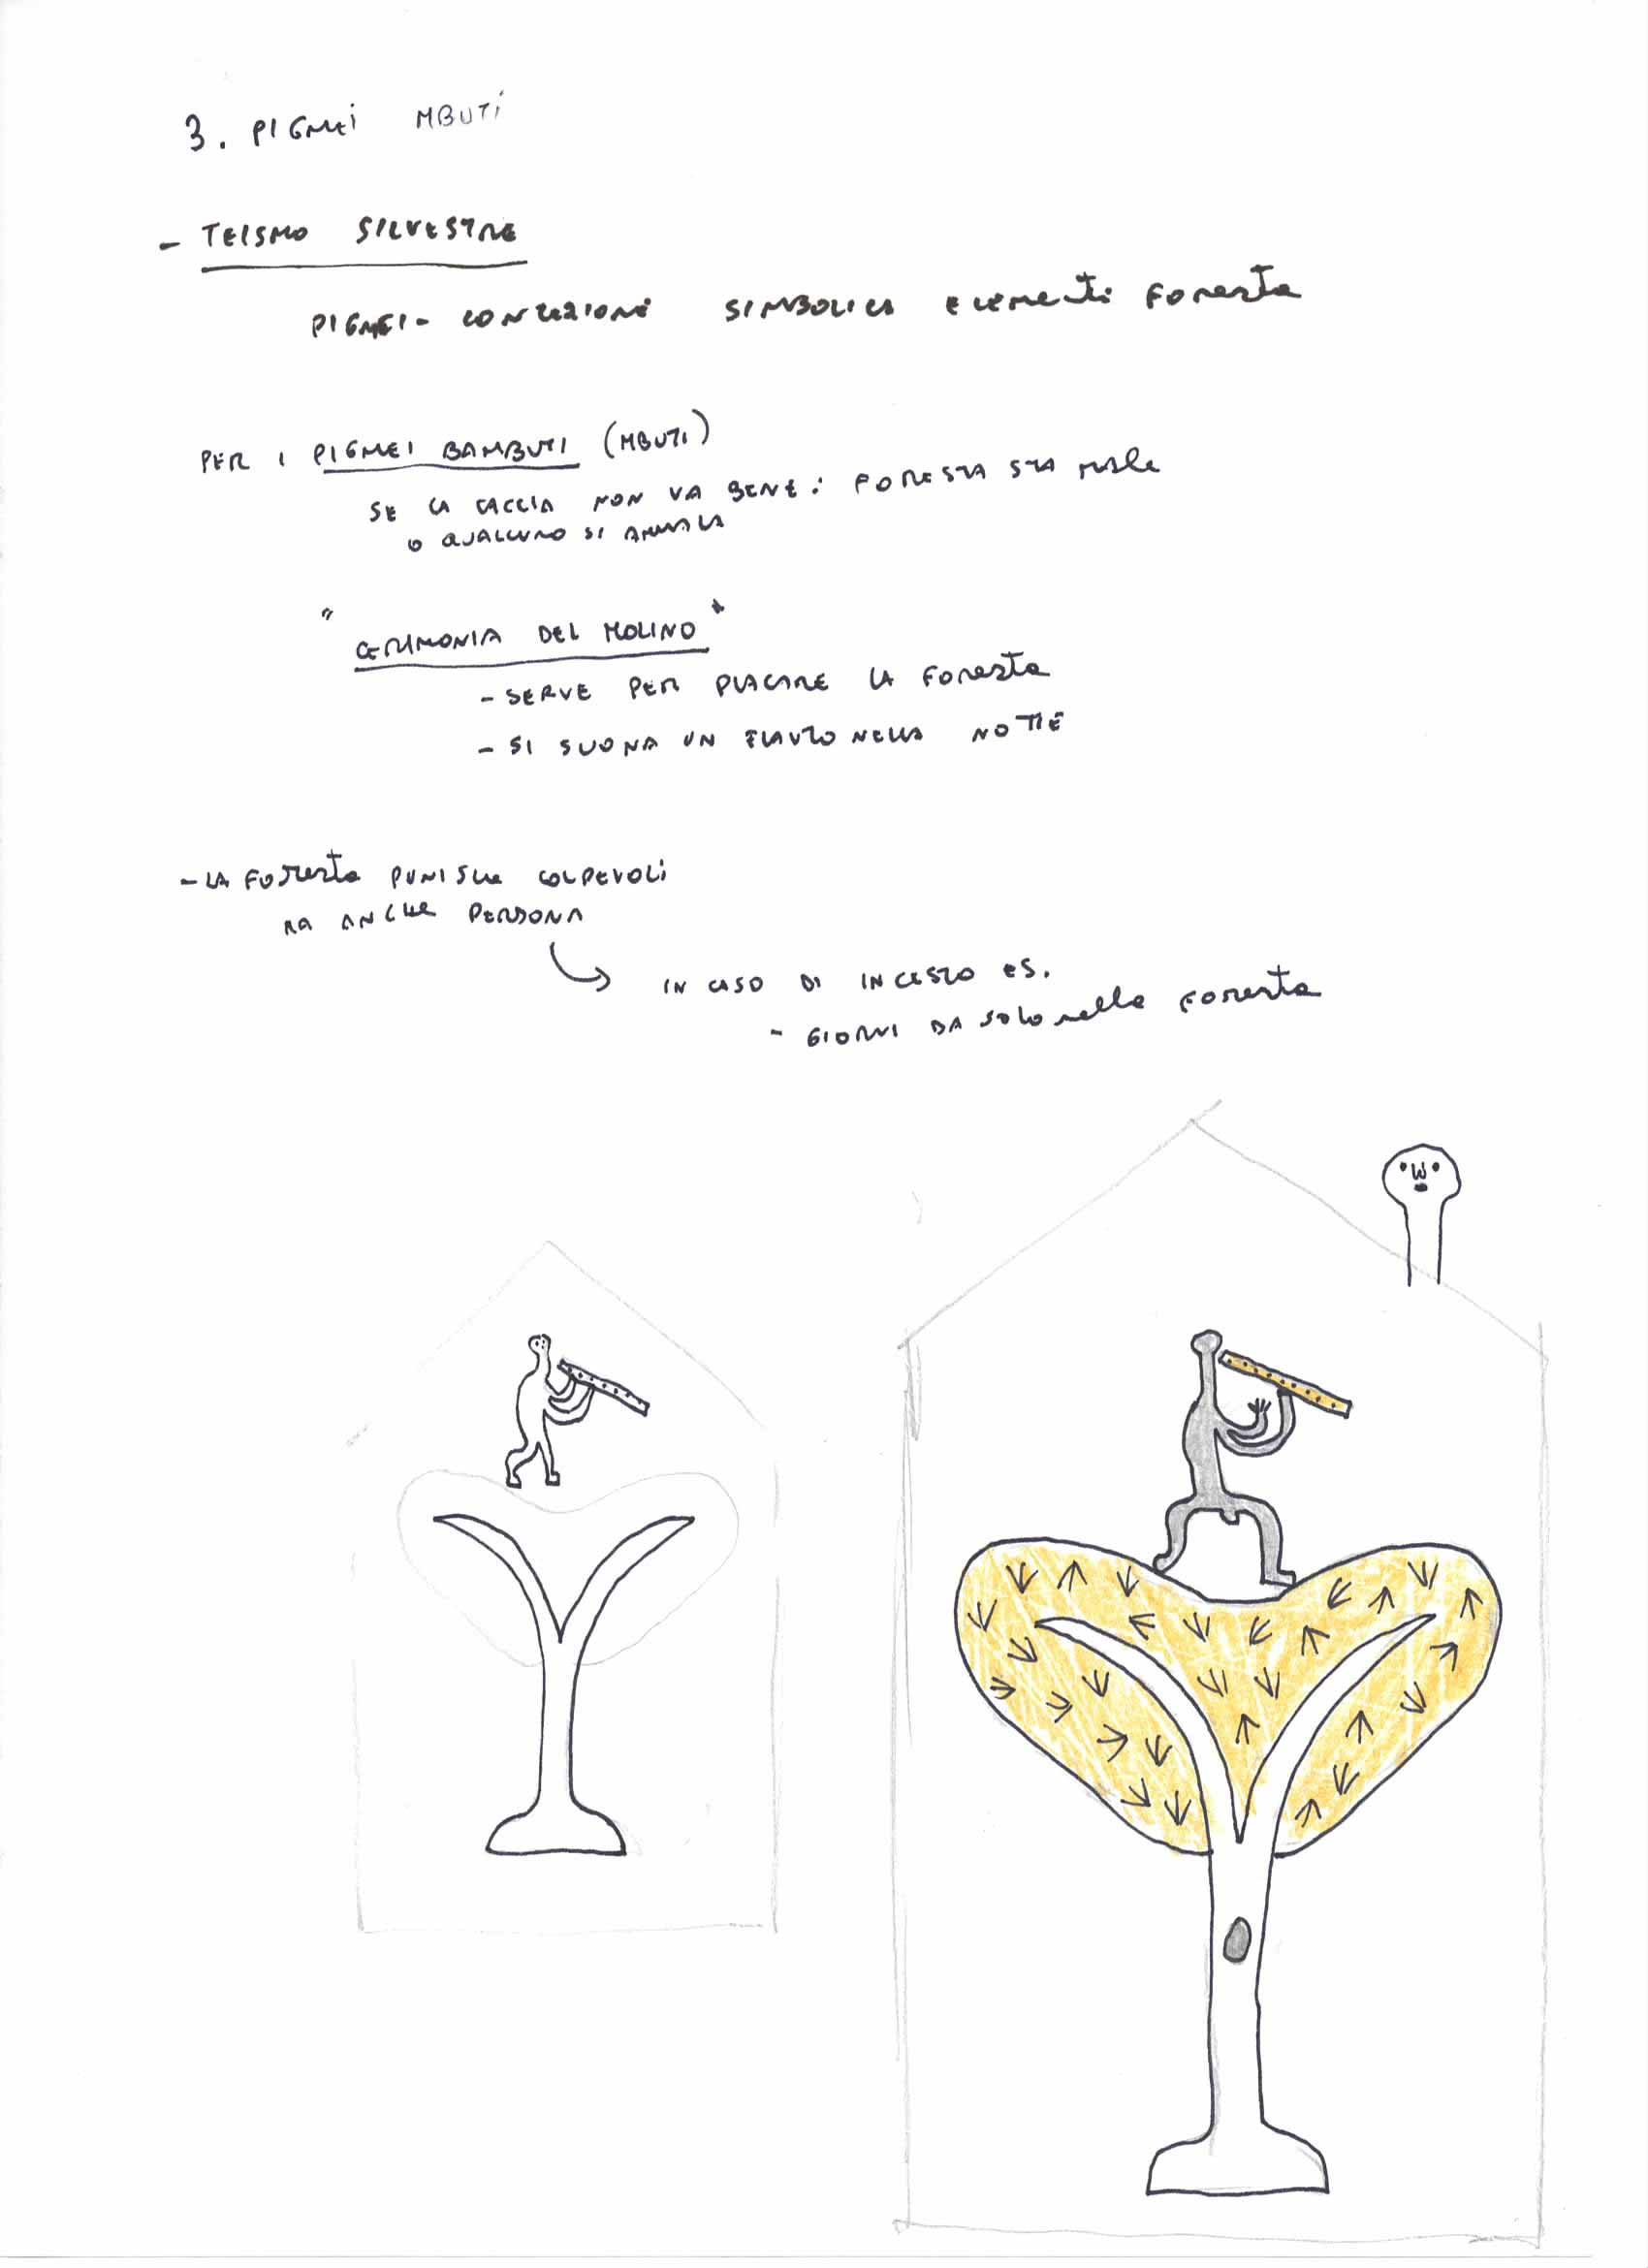 3. PIGMEI MBUTI
- TEISMO SILVESTRE
PIGMEI - CONCEZIONE SIMBOLICA ELEMENTI FORESTA
PER I PIGMEI BAMBUTI (MBUTI)
SE LA CACCIA NON VA BENE: FORESTA STA MALE
O QUALCUNO SI AMMALA
"CERIMONIA DEL MOLINO"
- SERVE PER PLACARE LA FORESTA
- SI SUONA UN FLAUTO NELLA NOTTE
- LA FORESTA PUNISCE COLPEVOLI
MA ANCHE PERDONA
IN CASO DI INCESTO ES.
- GIORNI DA SOLO nella FORESTA